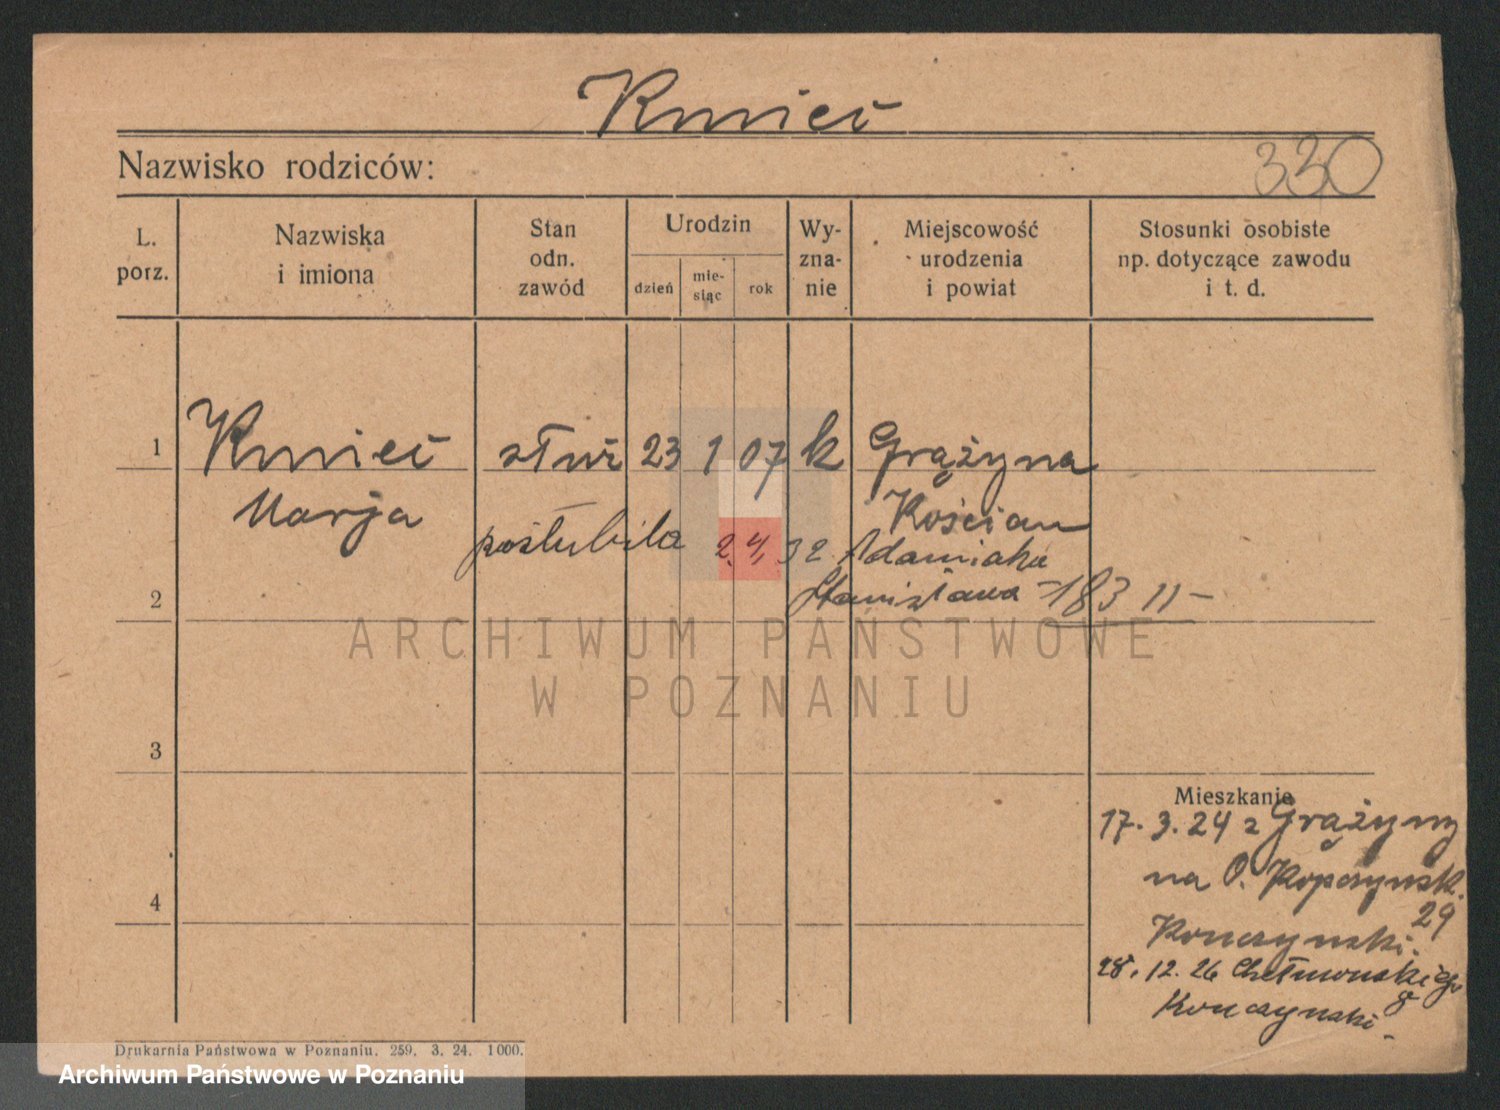 Kmieć
Nazwisko rodziców:
330
L. porz.
Nazwiska i imiona
Stan odn. zawód
Urodzin
dzień
mie-siąc
rok
Wy-zna-nie
Miejscowość urodzenia i powiat
Stosunki osobiste np. dotyczące zawodu i t. d.
1 Kmieć służ 23 1 07 k Grążyna
Marja Kościan
poślubiła 2.4.32 Adamiaka
2 Stanisława -183 11-
3
Mieszkanie
17.3.24 z Grążyny
na O. Kopczyńsk.
4 29
Konczyński.
28.12.26 Chełmońskiego
8
Konczyński-
Drukarnia Państwowa w Poznaniu. 259. 3. 24. 1000.
ARCHIWUM PAŃSTWOWE
W POZNANIU
Archiwum Państwowe w Poznaniu